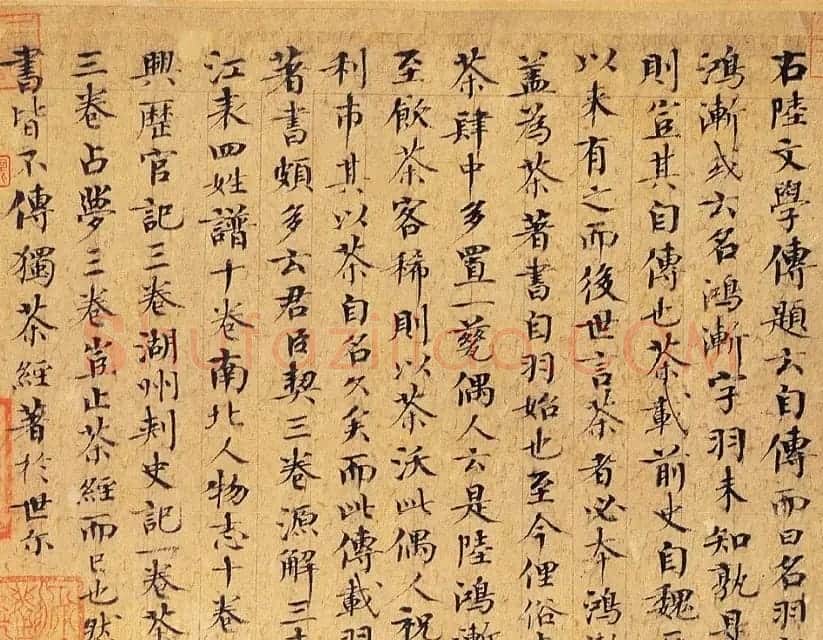 右陸文學傳題云自傳而曰名羽
鴻漸或云名鴻漸字羽未知孰是
則豈其自傳也茶載前史自魏
以來有之而後世言茶者必本鴻
蓋為茶著書自羽始也至今俚俗
茶肆中多置一甆偶人云是陸鴻漸
至飲茶客稀則以茶沃此偶人祝
利市其以茶自名久矣而此傳載羽
著書頗多云君臣契三卷源解三
江表四姓譜十卷南北人物志十卷
興歷官記三卷湖州刺史記一卷茶
三卷占夢三卷豈止茶經而已也然
書皆不傳獨茶經著於世尔
Shufaziliao.COM